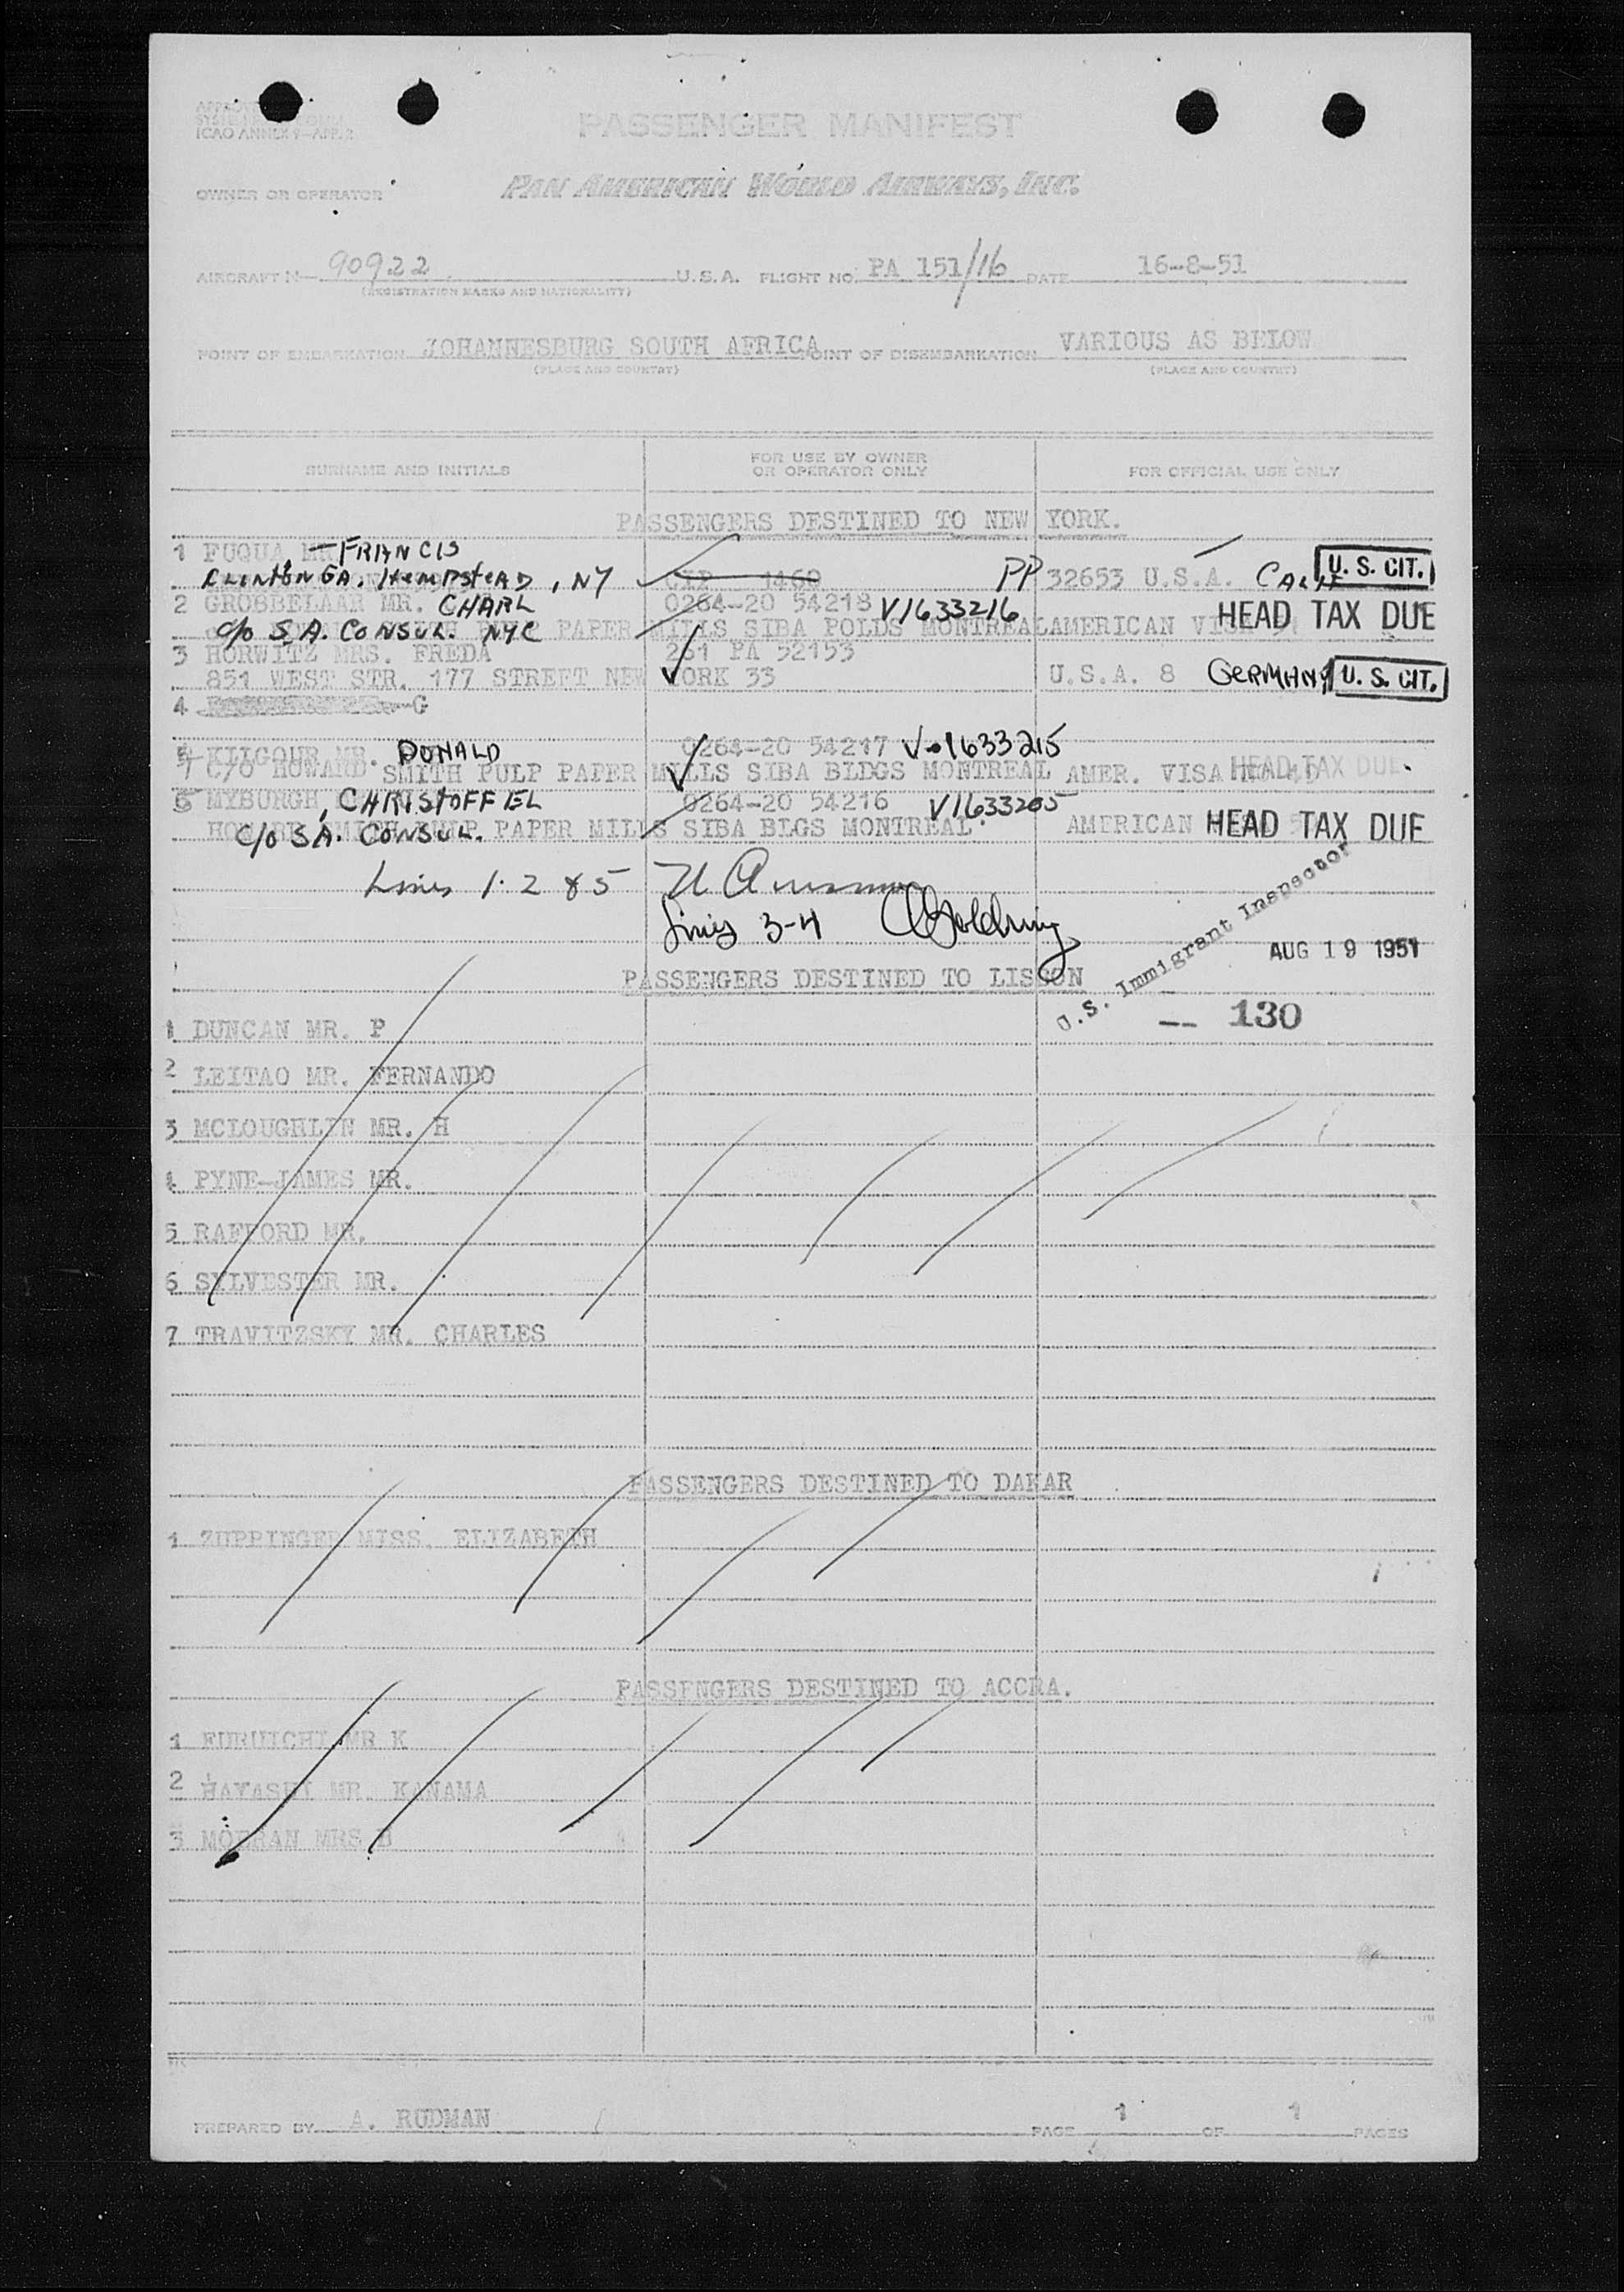 ICAO ANNEX 9—APP. 2
PASSENGER MANIFEST
OWNER OR OPERATOR PAN AMERICAN WORLD AIRWAYS, INC.
AIRCRAFT N— 90922 U.S.A. FLIGHT NO. PA 151/16 DATE 16-8-51
(REGISTRATION MARKS AND NATIONALITY)
POINT OF EMBARKATION JOHANNESBURG SOUTH AFRICA POINT OF DISEMBARKATION VARIOUS AS BELOW
(PLACE AND COUNTRY) (PLACE AND COUNTRY)
SURNAME AND INITIALS FOR USE BY OWNER OR OPERATOR ONLY FOR OFFICIAL USE ONLY
PASSENGERS DESTINED TO NEW YORK.
1 FUQUA MR — FRANCIS
CLINTON GA. HEMPSTEAD, NY 1460 PP 32653 U.S.A. U.S. CIT.
2 GROBBELAAR MR. CHARL 0264-20 54218 V1633216 HEAD TAX DUE
c/o S.A. CONSUL. NYC PAPER MILLS SIBA POLDS MONTREAL AMERICAN VISA
3 HORWITZ MRS. FREDA 261 PA 52153
851 WEST STR. 177 STREET NEW YORK 33 U.S.A. 8 GERMANY U.S. CIT.
4 G
KILGOUR MR. DONALD 0264-20 54217 V-1633215
4 C/O HOWARD SMITH PULP PAPER MILLS SIBA BLDGS MONTREAL AMER. VISA HEAD TAX DUE.
5 MYBURGH, CHRISTOFFEL 0264-20 54216 V1633205
c/o S.A. CONSUL. PAPER MILLS SIBA BLGS MONTREAL. AMERICAN HEAD TAX DUE
Lines 1. 2 & 5
Lines 3-4
U.S. Immigrant Inspector
AUG 19 1951
PASSENGERS DESTINED TO LISBON
-- 130
1 DUNCAN MR. P
2 LEITAO MR. FERNANDO
3 MCLOUGHLIN MR. H
4 PYNE-JAMES MR.
5 RAFFORD MR.
6 SYLVESTER MR.
7 TRAVITZSKY MR. CHARLES
PASSENGERS DESTINED TO DAKAR
1 ZUPPINGER MISS. ELIZABETH
PASSENGERS DESTINED TO ACCRA.
1 FURUICHI MR K
2 HAYASHI MR. KANAMA
3 MOERAN MRS B
PREPARED BY A. RUDMAN PAGE 1 OF 1 PAGES